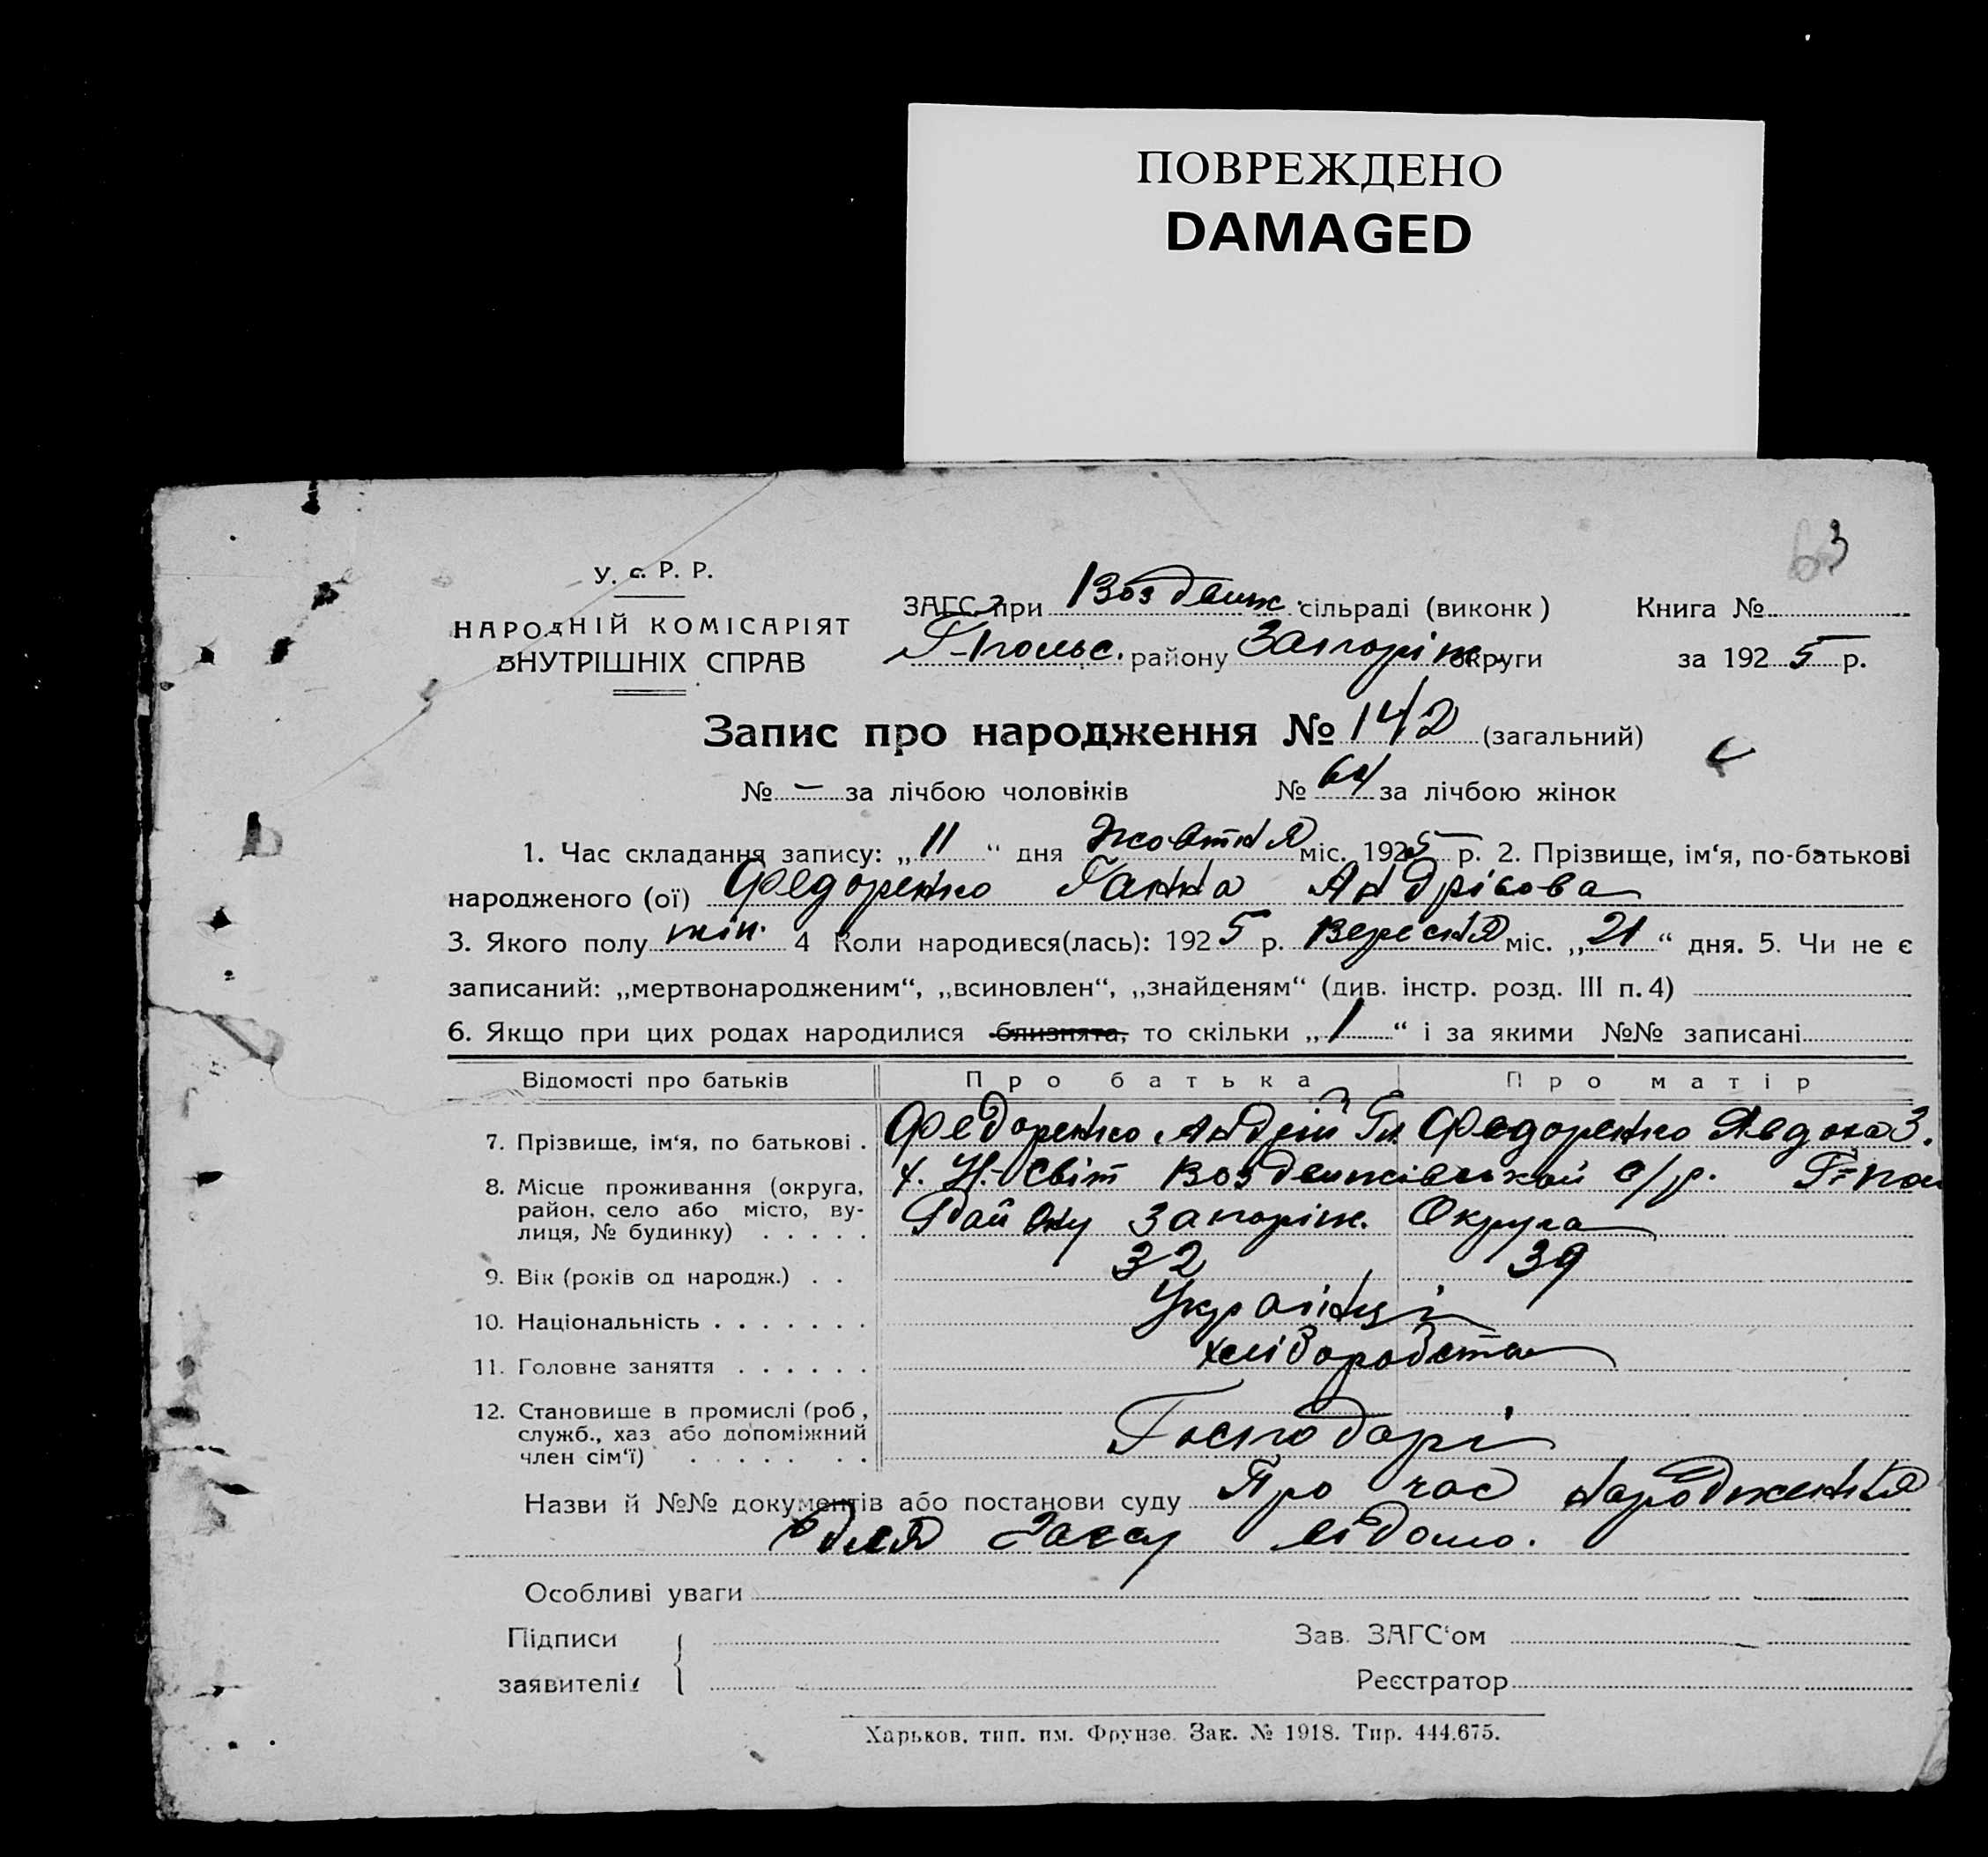 ПОВРЕЖДЕНО
DAMAGED
63
У. С. Р. Р.
НАРОДНІЙ КОМІСАРІЯТ
ВНУТРІШНІХ СПРАВ
ЗАГС при Воздвиж. сільраді (виконк) Книга №
Г-польс. району Запоріж. округи за 1925 р.
Запис про народження № 142 (загальний)
№ – за лічбою чоловіків № 64 за лічбою жінок
1. Час складання запису: „11“ дня Жовтня міс. 1925 р. 2. Прізвище, ім‘я, по-батькові
народженого (ої) Федоренко Ганна Андрієва
3. Якого полу жін. 4 Коли народився(лась): 1925 р. Вересня міс. „21“ дня. 5. Чи не є
записаний: „мертвонародженим“, „всиновлен“, „знайденям“ (див. інстр. розд. III п. 4)
6. Якщо при цих родах народилися близнята, то скільки „1“ і за якими №№ записані
Відомості про батьків Про батька Про матір
7. Прізвище, ім‘я, по батькові . Федоренко Андрій Федоренко Явдоха З.
8. Місце проживання (округа, район, село або місто, ву-лиця, № будинку) . . . . . х. Н.-Світ Воздвижівської с/р. Г-пол
Району Запоріж. Округа
9. Вік (років од народж.) . . 32 39
10. Національність . . . . . . . Українці
11. Головне заняття . . . . . . хліборобство
12. Становище в промислі (роб, служб., хаз або допоміжний член сім‘ї) . . . . . . . Господарі
Назви й №№ документів або постанови суду Про час народження
для Загсу відомо.
Особливі уваги
Підписи Зав. ЗАГС‘ом
заявителів Реєстратор
Харьков, тип. им. Фрунзе. Зак. № 1918. Тир. 444.675.